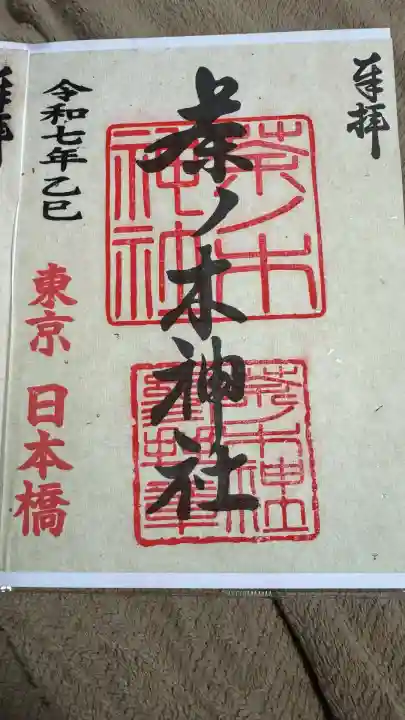 奉拝
茶ノ木神社
茶ノ木
神社
茶ノ木神社
令和七年乙巳
東京 日本橋
拝